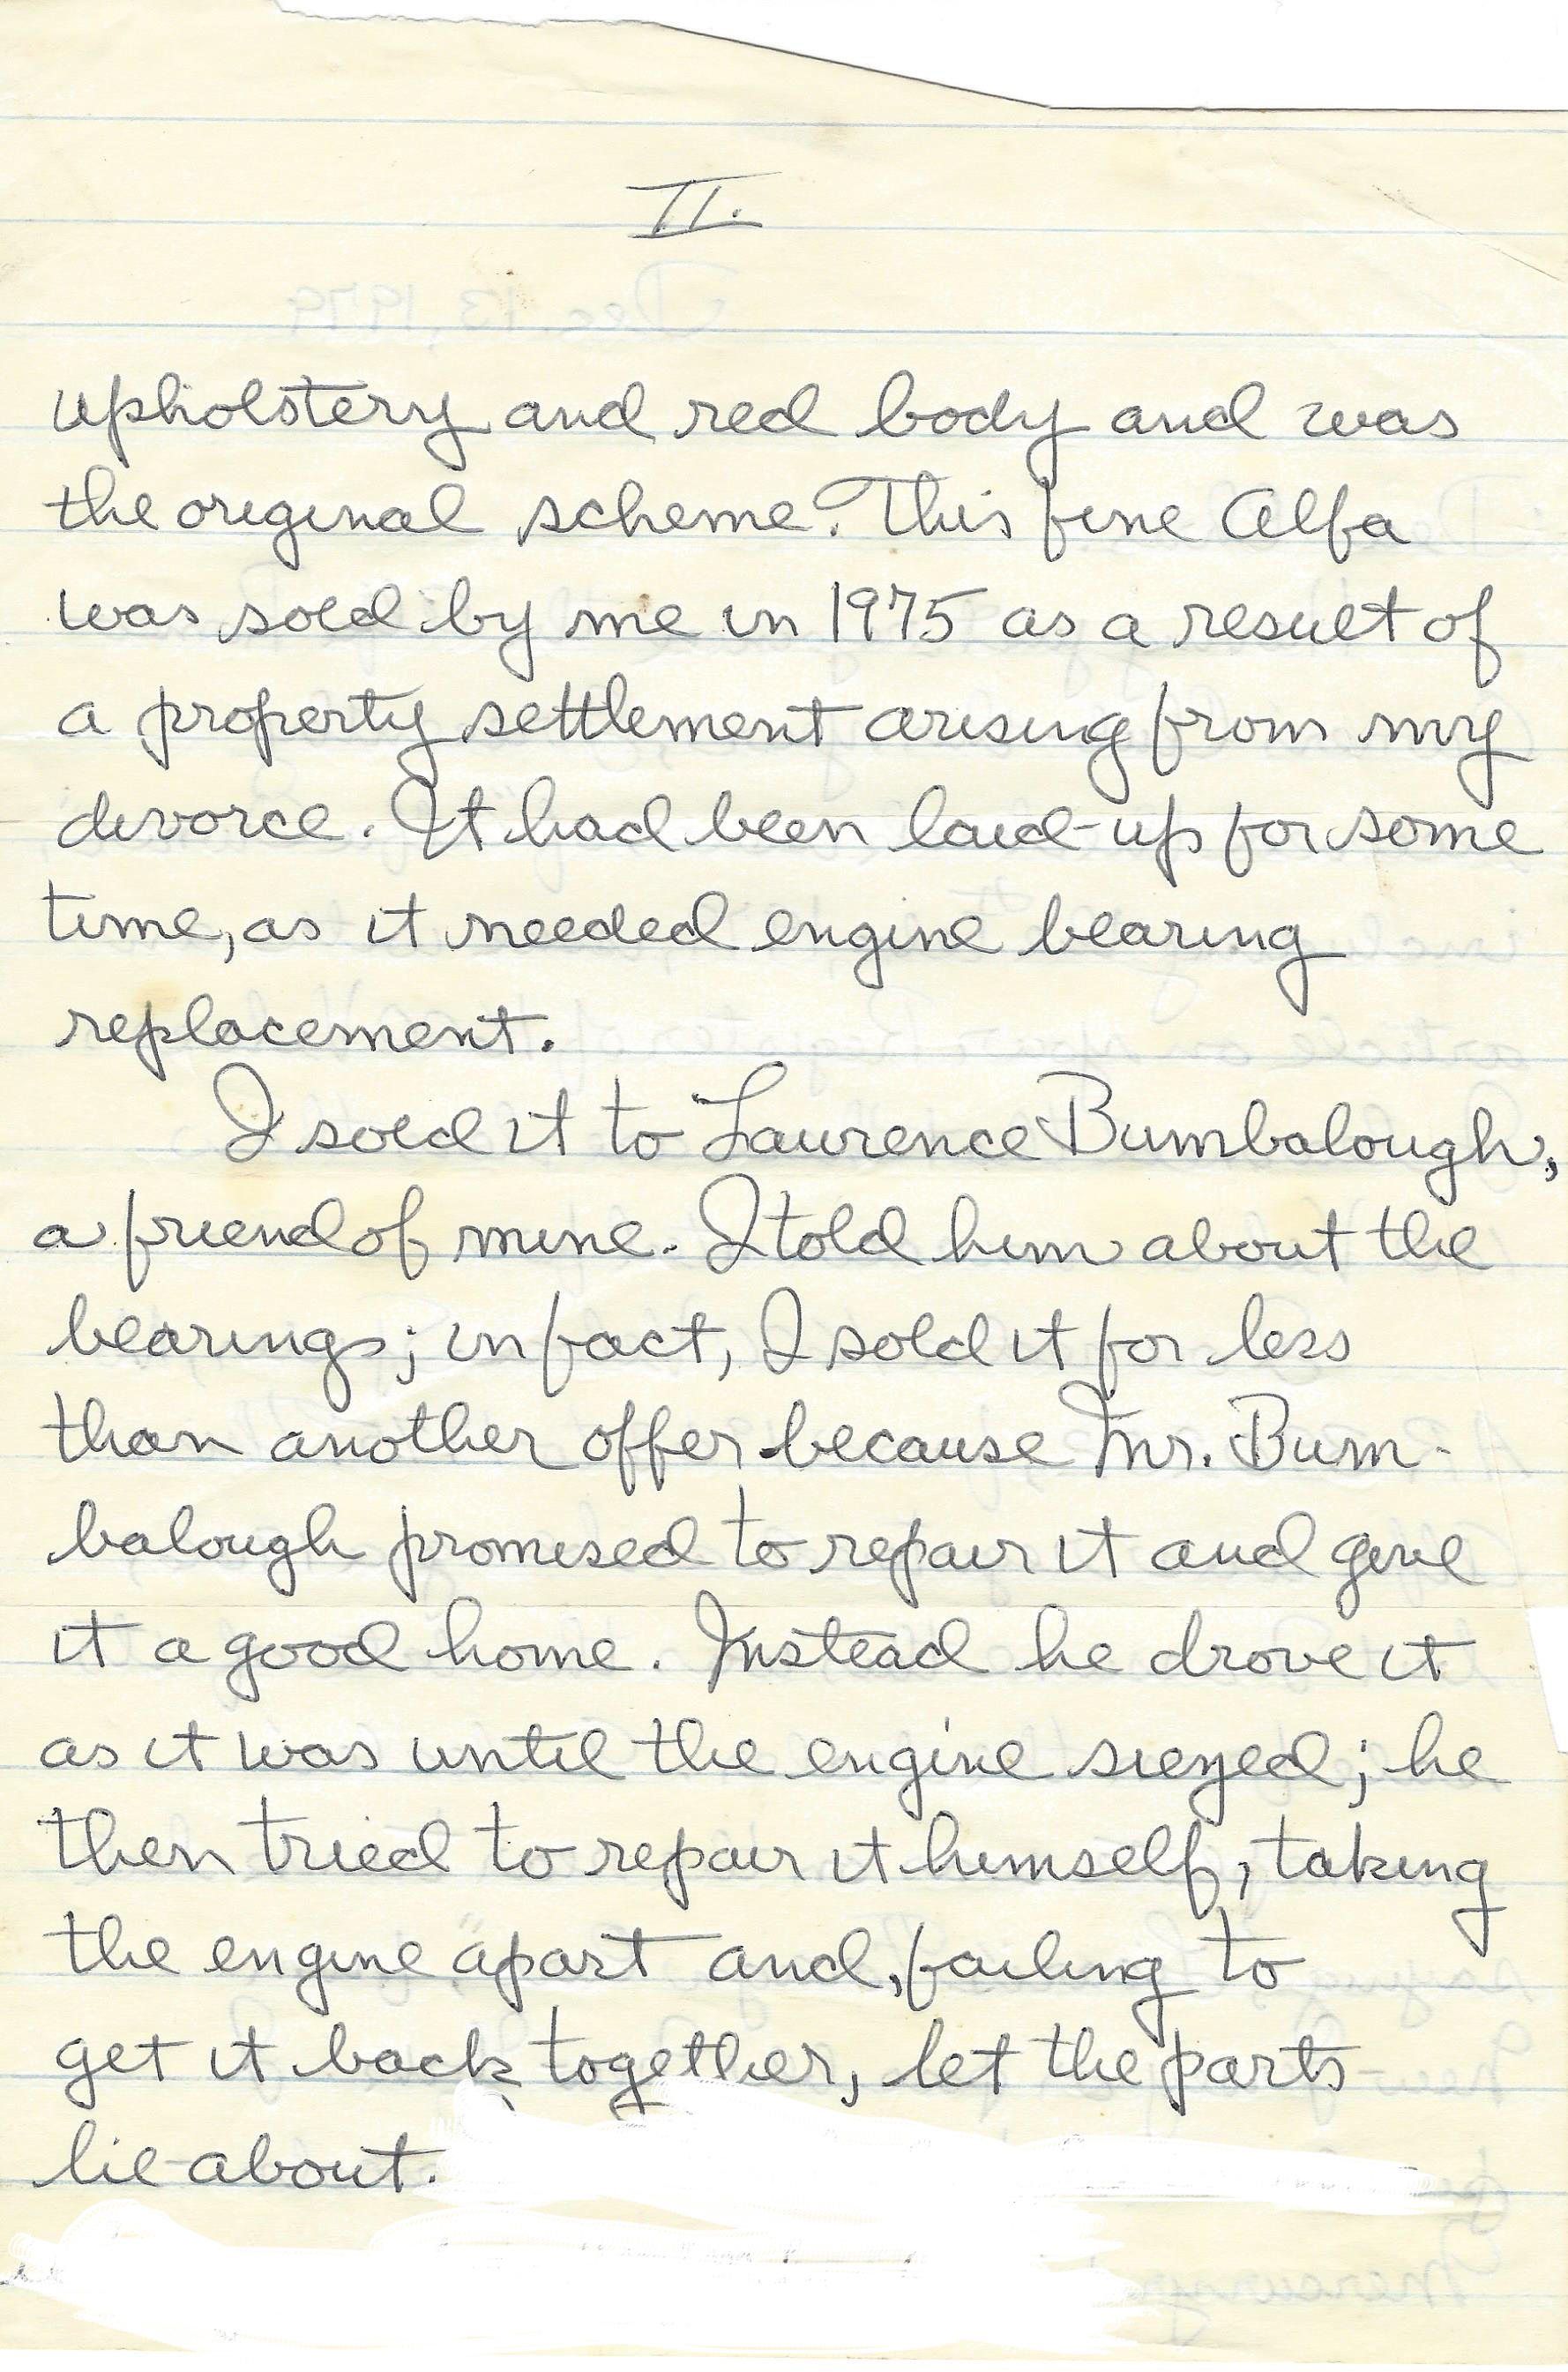 II.
upholstery and red body and was
the original scheme. This fine Alfa
was sold by me in 1975 as a result of
a property settlement arising from my
divorce. It had been laid-up for some
time, as it needed engine bearing
replacement.
I sold it to Laurence Bumbalough,
a friend of mine. I told him about the
bearings; in fact, I sold it for less
than another offer because Mr. Bum-
balough promised to repair it and give
it a good home. Instead he drove it
as it was until the engine siezed; he
then tried to repair it himself, taking
the engine apart and, failing to
get it back together, let the parts
lie about.